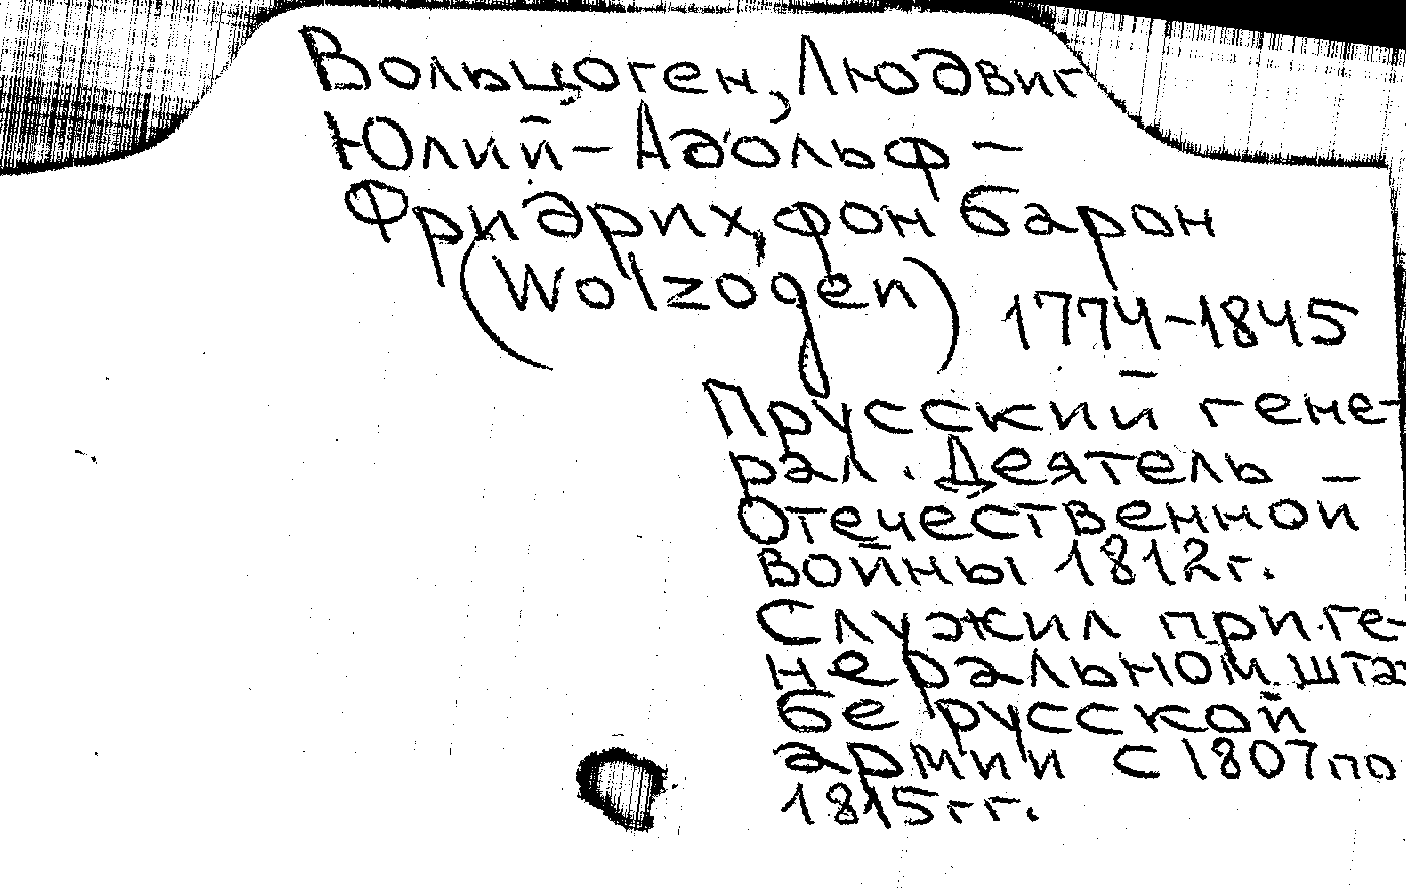 Вольцоген, Людвиг
Юлий-Адольф-
Фридрих, фон барон
(Wolzogen) 1774-1845
Прусский гене-
рал. Деятель
Отечественной
войны 1812г.
Служил при ге-
неральном шта
бе русской
армии с 1807 по
1815 гг.